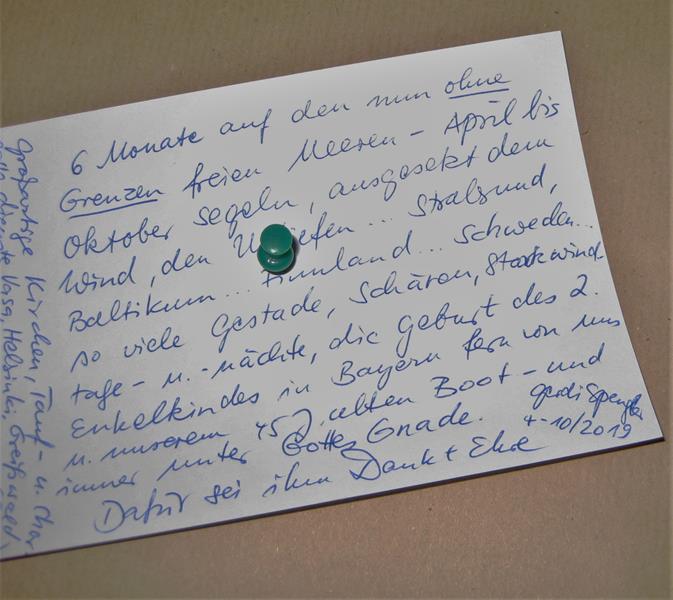 6 Monate auf den nun ohne
Grenzen freien Meeren - April bis
Oktober segeln, ausgesetzt dem
Wind, den ... Stralsund,
Baltikum ... Finnland ... Schweden ...
so viele Gestade, Schären, Starkwind-
tage- u. -nächte, die Geburt des 2.
Enkelkindes in Bayern fern von uns
u. unserem 45 J. alten Boot - und
immer unter Gottes Gnade.
Dafür sei ihm Dank + Ehre
Gerdi Spengler
4-10/2019
Großartige Kirchen, Tauf- u.
Vasa, Helsinki, Greifswald